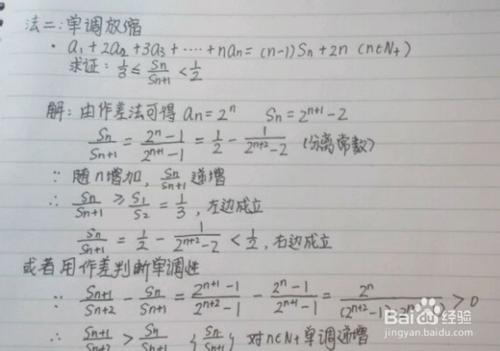 法二:单调放缩
· a₁+2a₂+3a₃+⋯+naₙ=(n-1)Sₙ+2n (n∈N₊)
求证: 1/3 ≤ Sₙ/Sₙ₊₁ < 1/2
解:由作差法可得 aₙ=2ⁿ Sₙ=2ⁿ⁺¹-2
Sₙ/Sₙ₊₁ = (2ⁿ-1)/(2ⁿ⁺¹-1) = 1/2 - 1/(2ⁿ⁺²-2) (分离常数)
∵ 随n增加, Sₙ/Sₙ₊₁ 递增
∴ Sₙ/Sₙ₊₁ ≥ S₁/S₂ = 1/3, 左边成立
Sₙ/Sₙ₊₁ = 1/2 - 1/(2ⁿ⁺²-2) < 1/2, 右边成立
或者用作差判断单调性
∵ Sₙ₊₁/Sₙ₊₂ - Sₙ/Sₙ₊₁ = (2ⁿ⁺¹-1)/(2ⁿ⁺²-1) - (2ⁿ-1)/(2ⁿ⁺¹-1) = 2ⁿ/(2ⁿ⁺²-1) > 0
∴ Sₙ₊₁/Sₙ₊₂ > Sₙ/Sₙ₊₁ {Sₙ/Sₙ₊₁} 对n∈N₊单调递增
Baidu 经验
jingyan.baidu.com